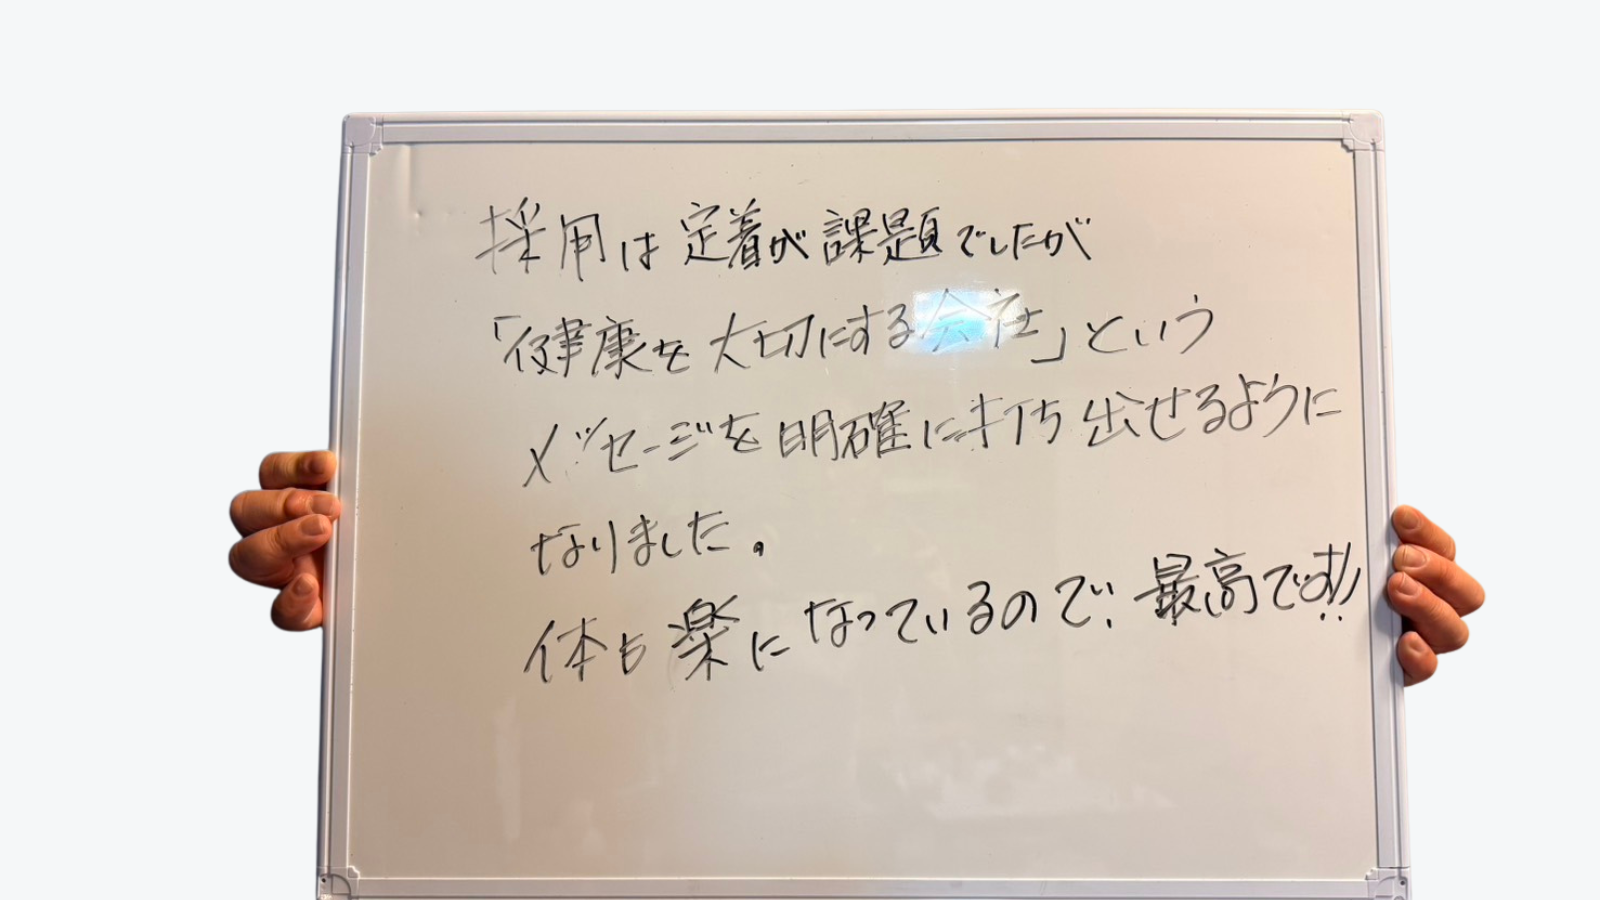 採用は定着が課題でしたが
「健康を大切にする会社」という
メッセージを明確に打ち出せるように
なりました。
体も楽になっているので、最高です!!